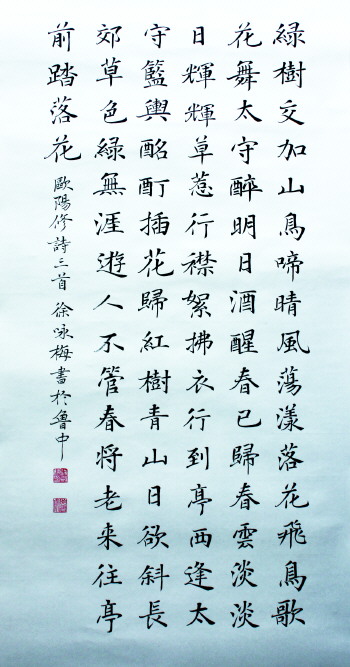 綠樹交加山鳥啼晴風蕩漾落花飛鳥歌
花舞太守醉明日酒醒春已歸春雲淡淡
日輝輝草惹行襟絮拂衣行到亭西逢太
守籃輿酩酊插花歸紅樹青山日欲斜長
郊草色綠無涯遊人不管春將老来往亭
前踏落花 歐陽修詩三首 徐咏梅書於魯中